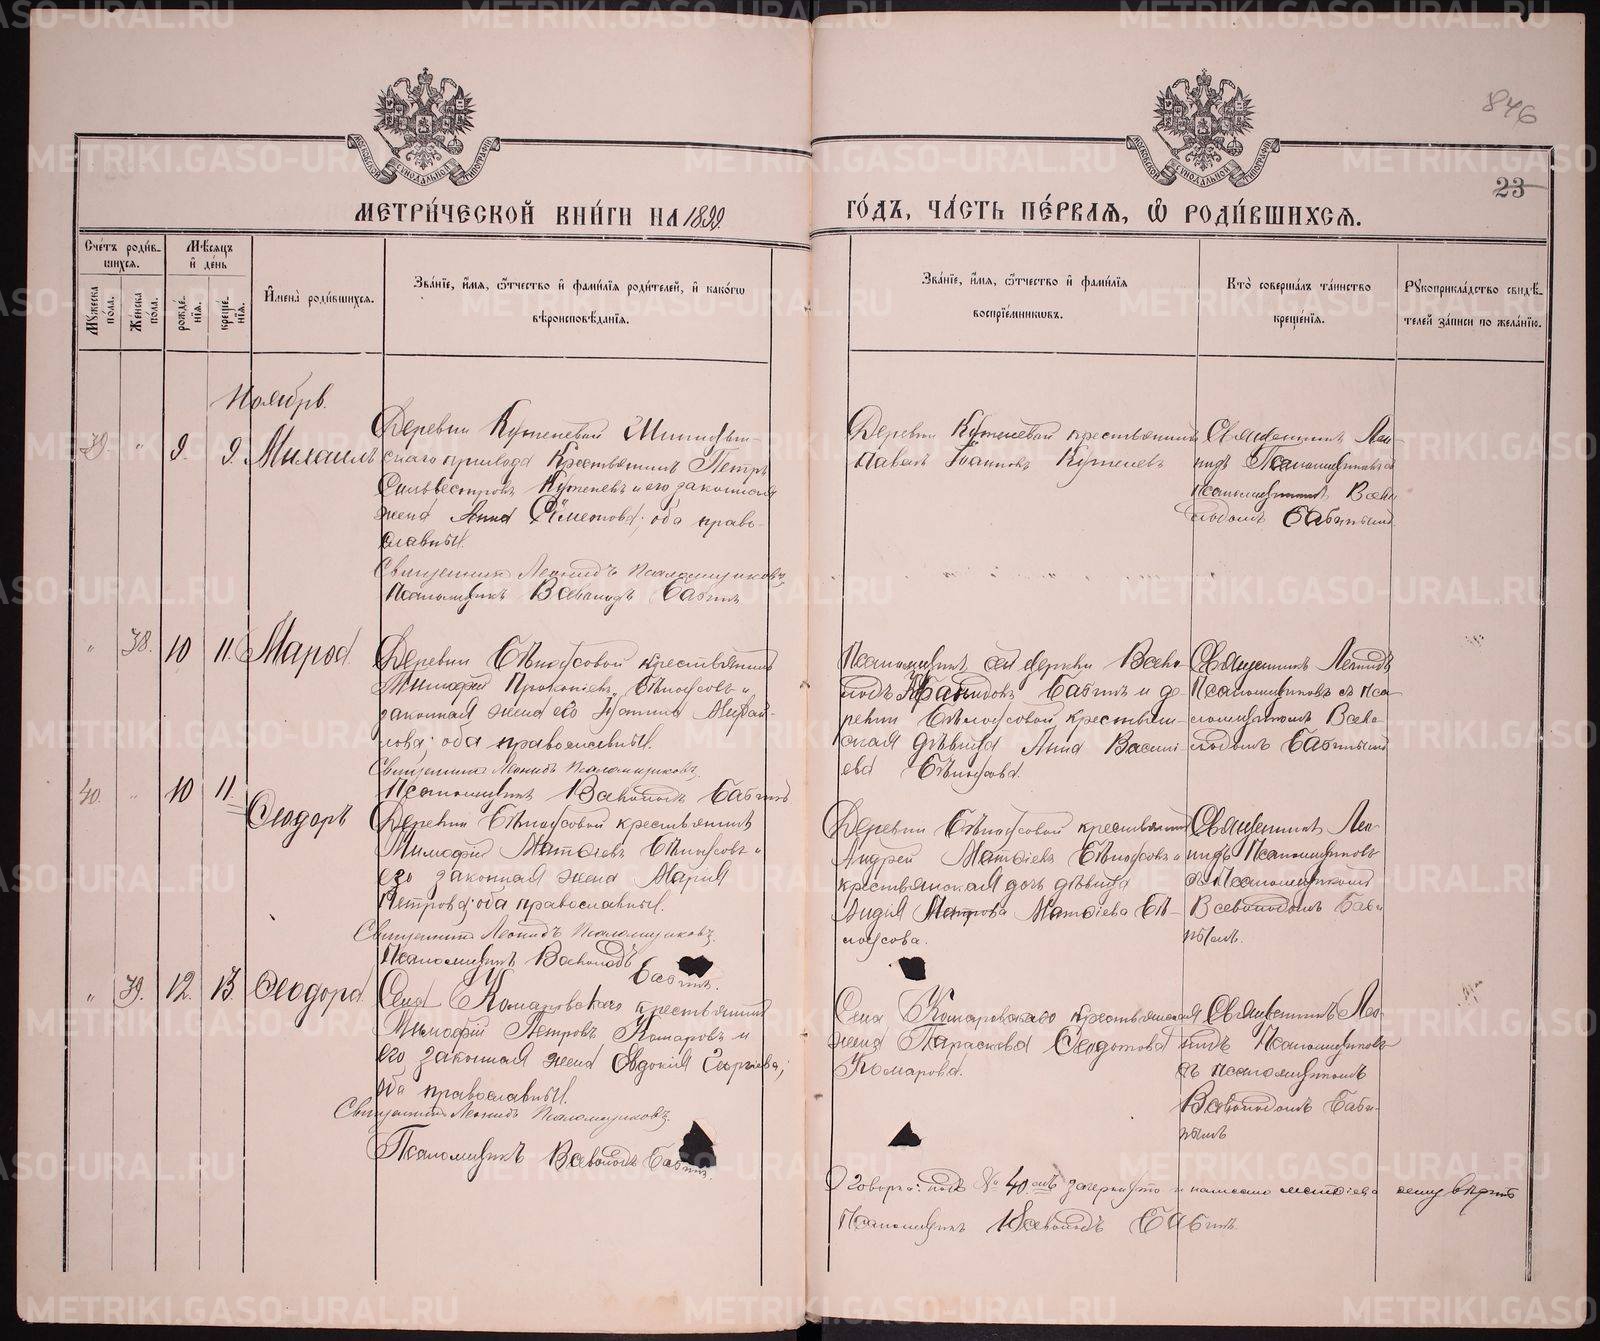 846
23
МОСКОВСКОЙ СѴНОДАЛЬНОЙ ТИПОГРАФІИ
МОСКОВСКОЙ СѴНОДАЛЬНОЙ ТИПОГРАФІИ
МЕТРИ́ЧЕСКОЙ КНИ́ГИ НА 1899
ГО́ДЪ, ЧА́СТЬ ПЕ́РВАЯ, Ѡ҆ РОДИ́ВШИХСЯ.
Сче́тъ роди́в-
шихся.
Мꙋжеска по́ла.
Же́нска по́ла.
Мѣ́сяцъ
и҆ де́нь
рожде́-
нїя.
креще́-
нїя.
И҆мена̀ роди́вшихся.
Зва́нїе, и҆́мя, ѻ҆́тчество и҆ фами́лїя роди́телей, и҆ како́гѡ
вѣроисповѣ́данїя.
Зва́нїе, и҆́мя, ѻ҆́тчество и҆ фами́лїя
воспрїе́мниковъ.
Кто̀ соверша́лъ та́инство
креще́нїя.
Рꙋкоприкла́дство свидѣ́-
телей за́писи по жела́нїю.
Ноябрь.
39. " 9. 9. Михаилъ
Деревни
крестьянинъ Петръ
Сильвестровъ и его законная
жена Анна Симеонова; оба право-
славные.
Священникъ Леонидъ Псаломщиковъ
Псаломщикъ Всеволодъ Бабинъ
Деревни крестьянинъ
Павелъ Іоанновъ
Священникъ Лео-
нидъ Псаломщиковъ съ
псаломщикомъ Всево-
лодомъ Бабинымъ
" 38. 10 11.
Деревни Бѣлоусовой крестьянинъ
Тимофей Прокопіевъ Бѣлоусовъ и
законная жена его Михай-
лова; оба православные.
Священникъ Леонидъ Псаломщиковъ
Псаломщикъ Всеволодъ Бабинъ
Псаломщикъ церкви Всево-
лодъ Бабинъ и де-
ревни Бѣлоусовой крестьян-
ская дѣвица Анна Васил-
ева Бѣлоусова.
Священникъ Леонидъ
Псаломщиковъ съ пса-
ломщикомъ Всево-
лодомъ Бабинымъ
40. " 10 11. Ѳеодоръ
Деревни Бѣлоусовой крестьянинъ
Тимофей Матѳіевъ Бѣлоусовъ и
его законная жена Марія
Петрова; оба православные.
Священникъ Леонидъ Псаломщиковъ
Псаломщикъ Всеволодъ
Бабинъ.
Деревни Бѣлоусовой крестьянинъ
Андрей Матѳіевъ Бѣлоусовъ и
крестьянская дочь дѣвица
Лидія Петрова Матѳіева Бѣ-
лоусова.
Священникъ Лео-
нидъ Псаломщиковъ
съ Псаломщикомъ
Всеволодомъ Баби-
нымъ.
" 39. 12. 13 Ѳеодора
Села Комаровскаго крестьянинъ
Тимофей Петровъ Комаровъ и
его законная жена Евдокія Георгіева;
оба православные.
Священникъ Леонидъ Псаломщиковъ.
Псаломщикъ Всеволодъ Бабинъ.
Села Комаровскаго крестьянская
жена Параскева Ѳеодотова
Комарова.
Священникъ Лео-
нидъ Псаломщиковъ
съ псаломщикомъ
Всеволодомъ Баби-
нымъ
Оговорка: подъ № 40 зачеркнуто и написано Матѳіева чему вѣрить
Псаломщикъ Всеволодъ Бабинъ.